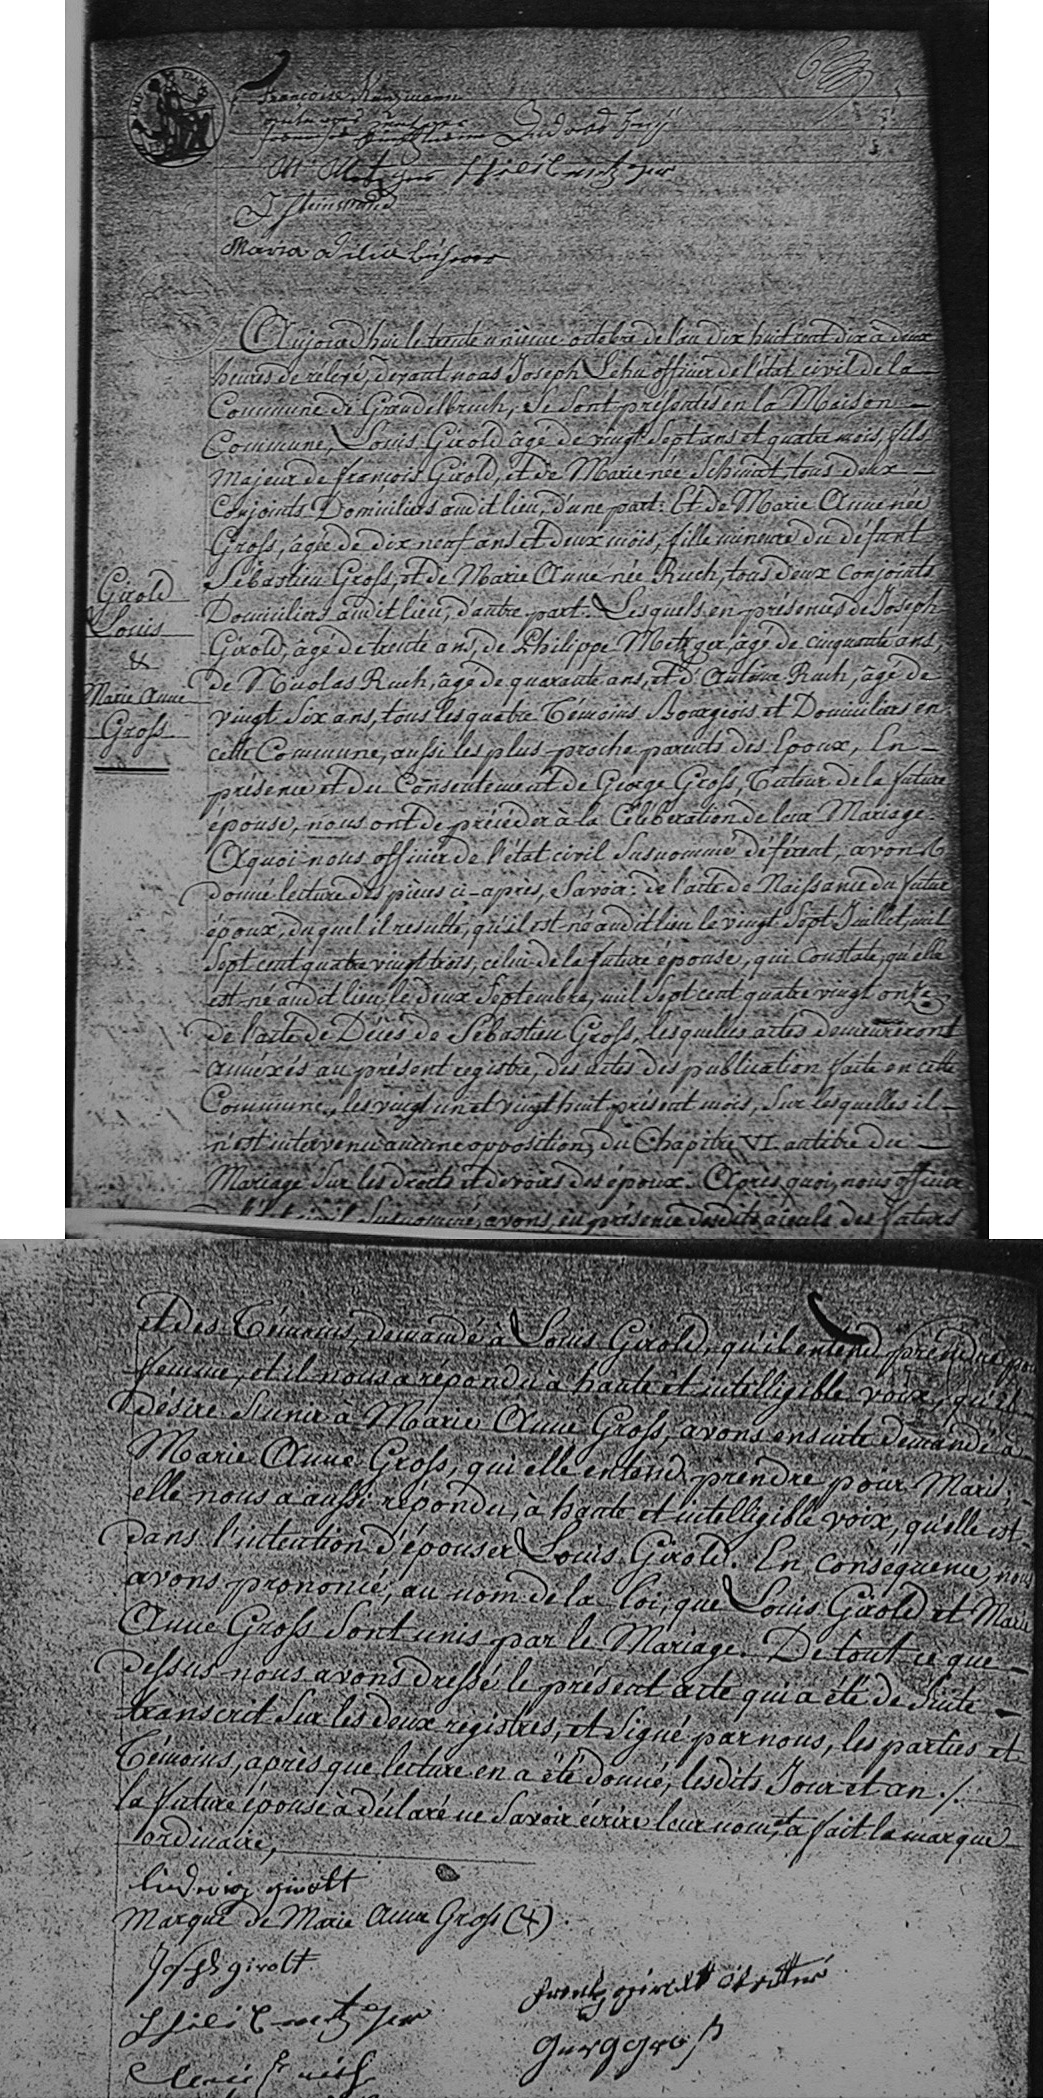 Françoise Kuntzmann
M Metzger
J Steinmetz
Maria
Aujourd'hui le trente unième octobre de l'an dix huit cent dix à deux
heures de relevé, devant nous Joseph Lehn officier de l'état civil de la
Commune de Grendelbruch, se sont présentés en la Maison
Commune, Louis Girold âgé de vingt Sept ans et quatre mois, fils
Majeur de françois Girold, et de Marie née Schmit, tous deux
Conjoints Domiciliers audit lieu, d'une part: Et de Marie Anne née
Gross, âgée de dix neuf ans et deux mois, fille mineure du défunt
Sébastien Gross, et de Marie Anne née Ruch, tous deux conjoints
Girold
Louis
&
Marie Anne
Gross
Domiciliers audit lieu, d'autre part. Lesquels en présences de Joseph
Girold, âgé de trente ans, de Philippe Metzger, âgé de cinquante ans,
de Nicolas Ruch, âgé de quarante ans, et d'Antoine Ruch, âgé de
vingt Six ans, tous les quatre Témoins Bourgeois et Domiciliers en
cette Commune, aussi les plus proche parents des Epoux, En
présence et du Consentement de George Gross, Tuteur de la future
épouse, nous ont de préceder à la Célébération de leur Mariage.
A quoi nous officier de l'état civil Susnommé déférent, avons
donné lecture des pièces ci-après, Savoir: de l'acte de Naissance du futur
époux, duquel il resulte, qu'il est né audit lieu le vingt Sept Juillet, mil
Sept cent quatre vingt trois, celui de la future épouse, qui Constate, qu'elle
est né audit lieu, le deux Septembre, mil Sept cent quatre vingt onze,
de l'acte de Décès de Sébastien Gross, lesquelles actes demeureront
annéxés au présent registre, des actes des publication faite en cette
Commune, les vingt un et vingt huit présent mois, Sur lesquelles il
n'est intervenu aucune opposition, du Chapitre VI. autitre du
Mariage Sur les droits et devoirs des époux. Après quoi, nous officier
de l'état civil Susnommé, avons, en présence desdits aieuls des futurs
et des Témoins, demandé à Louis Girold, qu'il entend prendre pour
femme, et il nous a répondu à haute et intelligible voix, qu'il
désire S'unir à Marie Anne Gross, avons ensuite demandé à
Marie Anne Gross, qui elle entend prendre pour Mari,
elle nous a aussi répondu, à haute et intelligible voix, qu'elle est
dans l'intention d'épouser Louis Girold. En conséquence, nous
avons prononcé, au nom de la loi, que Louis Girold et Marie
Anne Gross Sont unis par le Mariage. De tout ce que
dessus nous avons dressé le présent acte qui a été de Suite
transcrit Sur les deux registres, et Signé par nous, les parties et
Témoins, après que lecture en a été donné, lesdits Jour et an ./.
la future épouse à déclaré ne Savoir écrire leur nom, et a fait la marque
ordinaire,
Ludwig girolt
Marque de Marie Anne Gross (+)
Joseph girolt
girolt
gross